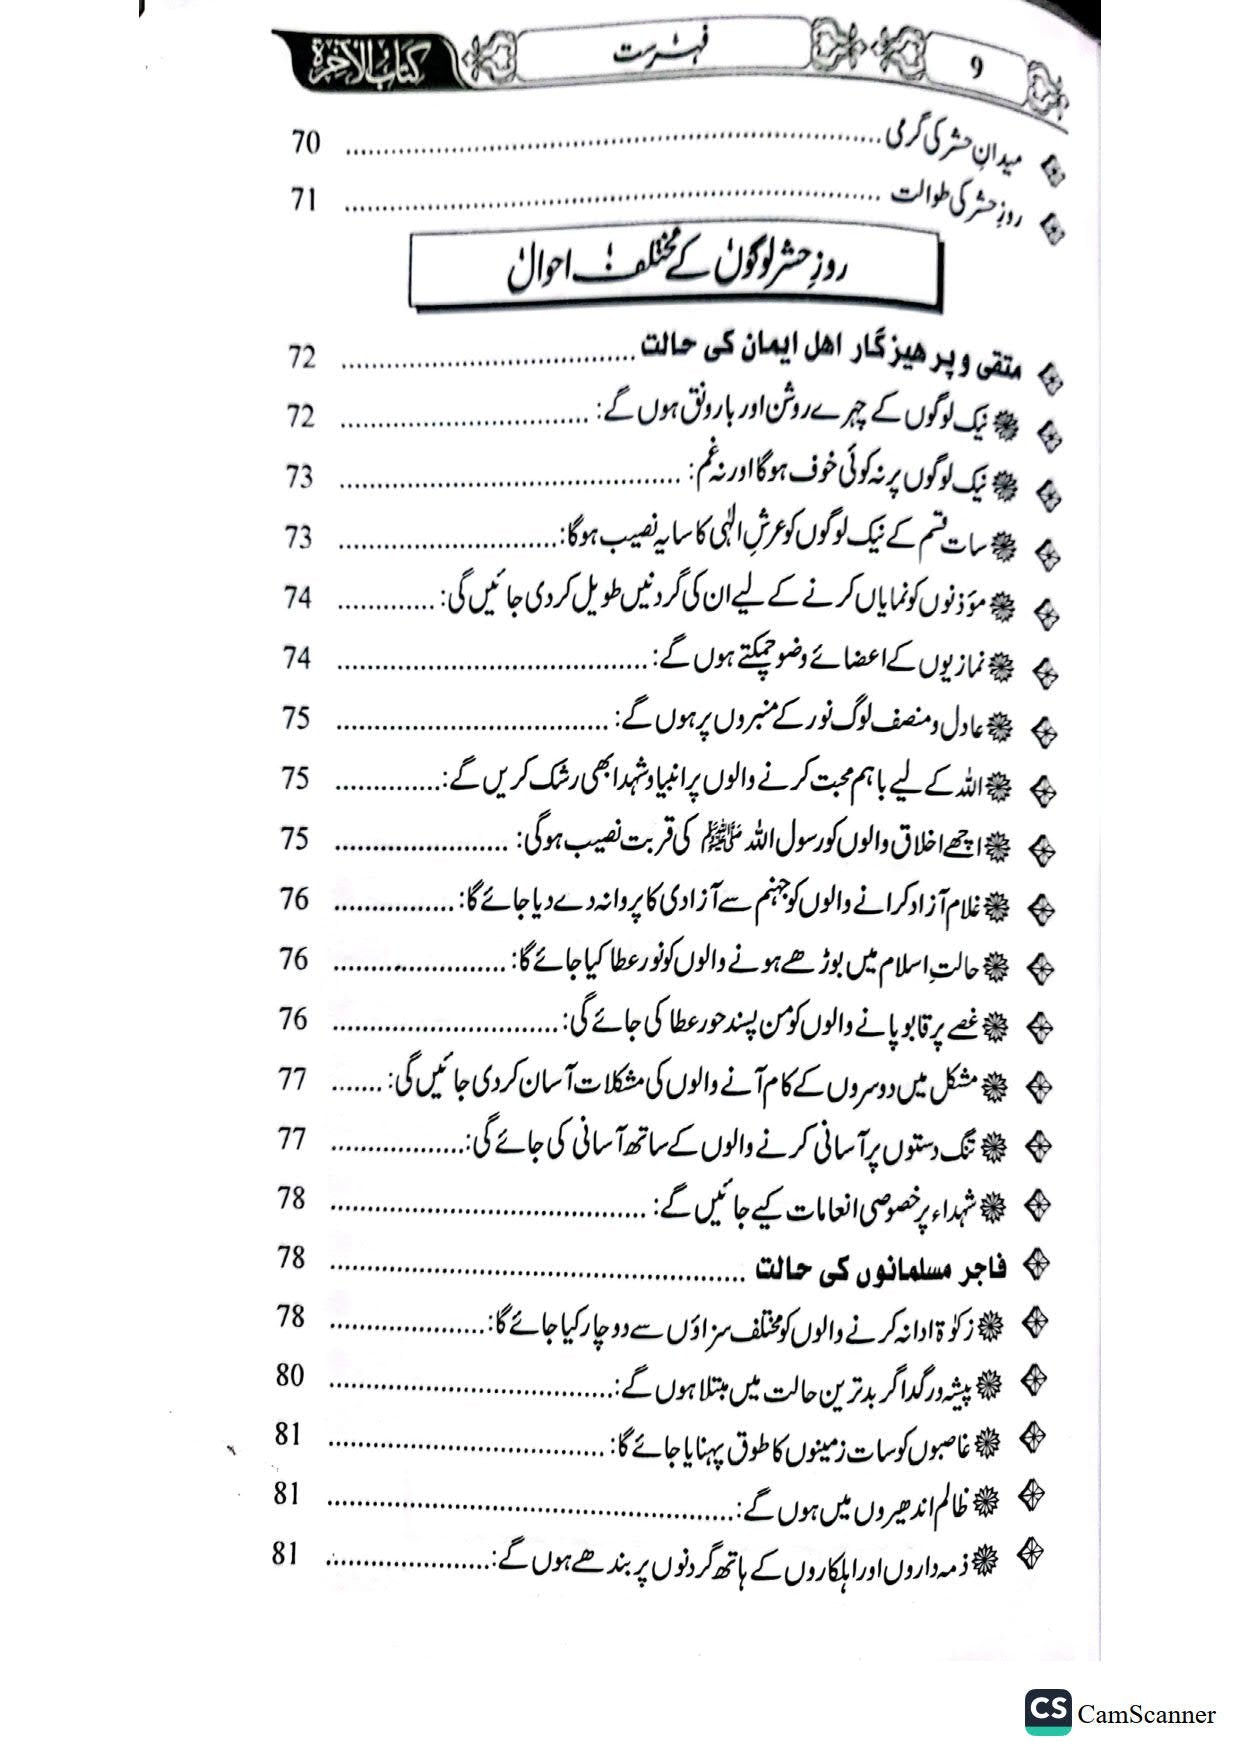 9 فہرست کتاب الآخرۃ
میدانِ حشر کی گرمی ........ 70
روزِ حشر کی طوالت ........ 71
روزِ حشر لوگوں کے مختلف احوال
متقی و پرهیزگار اهل ایمان کی حالت ........ 72
نیک لوگوں کے چہرے روشن اور بارونق ہوں گے: ........ 72
نیک لوگوں پر نہ کوئی خوف ہوگا اور نہ غم: ........ 73
سات قسم کے نیک لوگوں کو عرشِ الٰہی کا سایہ نصیب ہوگا: ........ 73
مؤذنوں کو نمایاں کرنے کے لیے ان کی گردنیں طویل کردی جائیں گی: ........ 74
نمازیوں کے اعضائے وضو چمکتے ہوں گے: ........ 74
عادل و منصف لوگ نور کے منبروں پر ہوں گے: ........ 75
اللہ کے لیے باہم محبت کرنے والوں پر انبیا و شہدا بھی رشک کریں گے: ........ 75
اچھے اخلاق والوں کو رسول اللہ ﷺ کی قربت نصیب ہوگی: ........ 75
غلام آزاد کرانے والوں کو جہنم سے آزادی کا پروانہ دے دیا جائے گا: ........ 76
حالتِ اسلام میں بوڑھے ہونے والوں کو نور عطا کیا جائے گا: ........ 76
غصے پر قابو پانے والوں کو من پسند حور عطا کی جائے گی: ........ 76
مشکل میں دوسروں کے کام آنے والوں کی مشکلات آسان کردی جائیں گی: ........ 77
تنگ دستوں پر آسانی کرنے والوں کے ساتھ آسانی کی جائے گی: ........ 77
شہداء پر خصوصی انعامات کیے جائیں گے: ........ 78
فاجر مسلمانوں کی حالت ........ 78
زکوٰۃ ادا نہ کرنے والوں کو مختلف سزاؤں سے دوچار کیا جائے گا: ........ 78
پیشہ ور گداگر بدترین حالت میں مبتلا ہوں گے: ........ 80
غاصبوں کو سات زمینوں کا طوق پہنایا جائے گا: ........ 81
ظالم اندھیروں میں ہوں گے: ........ 81
ذمہ داروں اور اہلکاروں کے ہاتھ گردنوں پر بندھے ہوں گے: ........ 81
CS CamScanner